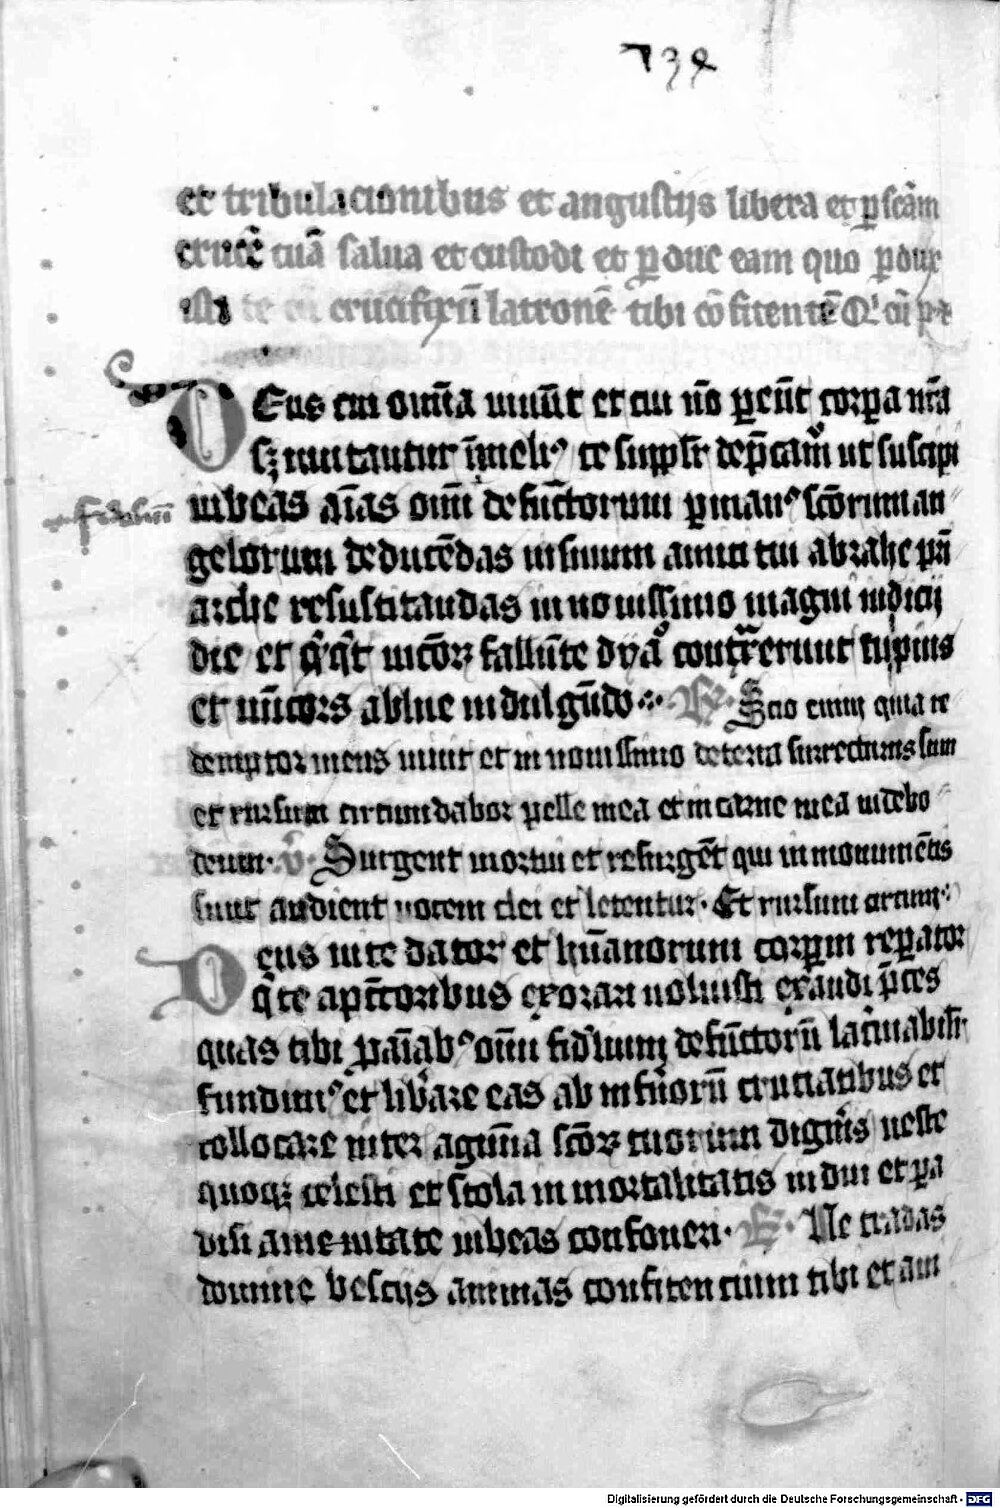 134
et tribulacionibus et angustijs libera et ꝑ scām
crucē tuā salua et custodi et ꝑduc eam quo ꝑdux
isti te cū crucifixū latronē tibi cōfitentē Q' cū pr̄e
DEus cui om̄ia uiuūt et cui nō ꝑeūt corꝑa nr̄a
sꝫ mutantur ī meliꝰ te supplr̄ dep̄camr̄ ut suscipi
iubeas aīas oīm defūctorum ꝑ manꝰ scōrum an
fidelium
gelorum deducēdas in sinum amici tui abrahe patri
arche resuscitandas in nouissimo magni iudicij
die et qͥcqͥd uicioꝝ fallēte dyabͦ contraxerunt tu pius
et mīcors ablue indulgēdo R. Scio enim quia re
demptor meus uiuit et in nouissimo de terra surrecturus sum
et rursum circumdabor pelle mea et in carne mea uidebo
deum. V. Surgent mortui et resurgēt qui in monumētis
sunt audient uocem dei et letentur. Et rursum circum.
Deus uite dator et hūanorum corꝑum reꝑator
q̄ te a pc̄toribus exorari uoluisti exaudi p̄ces
quas tibi ꝑ aīabꝰ oīm fidelium defūctorū lacrimabilr̄
fundimꝰ et libͣare eas ab inferorū cruciatibus et
collocare inter agmīa scōꝝ tuorum digneris ueste
quoqꝫ celesti et stola inmortalitatis indui et para
disi amenitate iubeas confoueri. R. Ne tradas
domine bestijs animas confitencium tibi et am
Digitalisierung gefördert durch die Deutsche Forschungsgemeinschaft - DFG